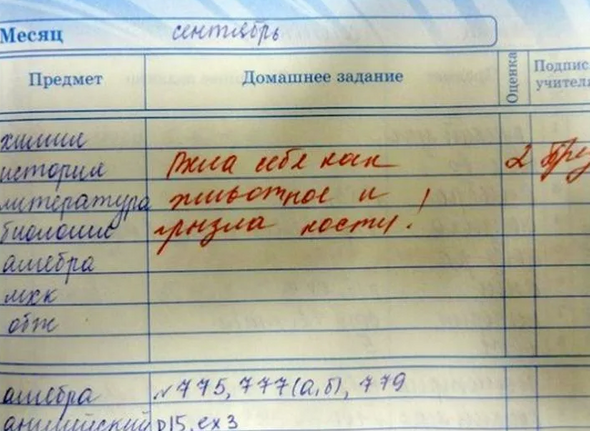 Месяц сентябрь
Предмет Домашнее задание Оценка Подпись учителя
химия
история Вела себя как 2
литература животное и
биология грызла кости!
алгебра
мхк
обж
алгебра №775, 777(а,б), 779
английский р15, ex3